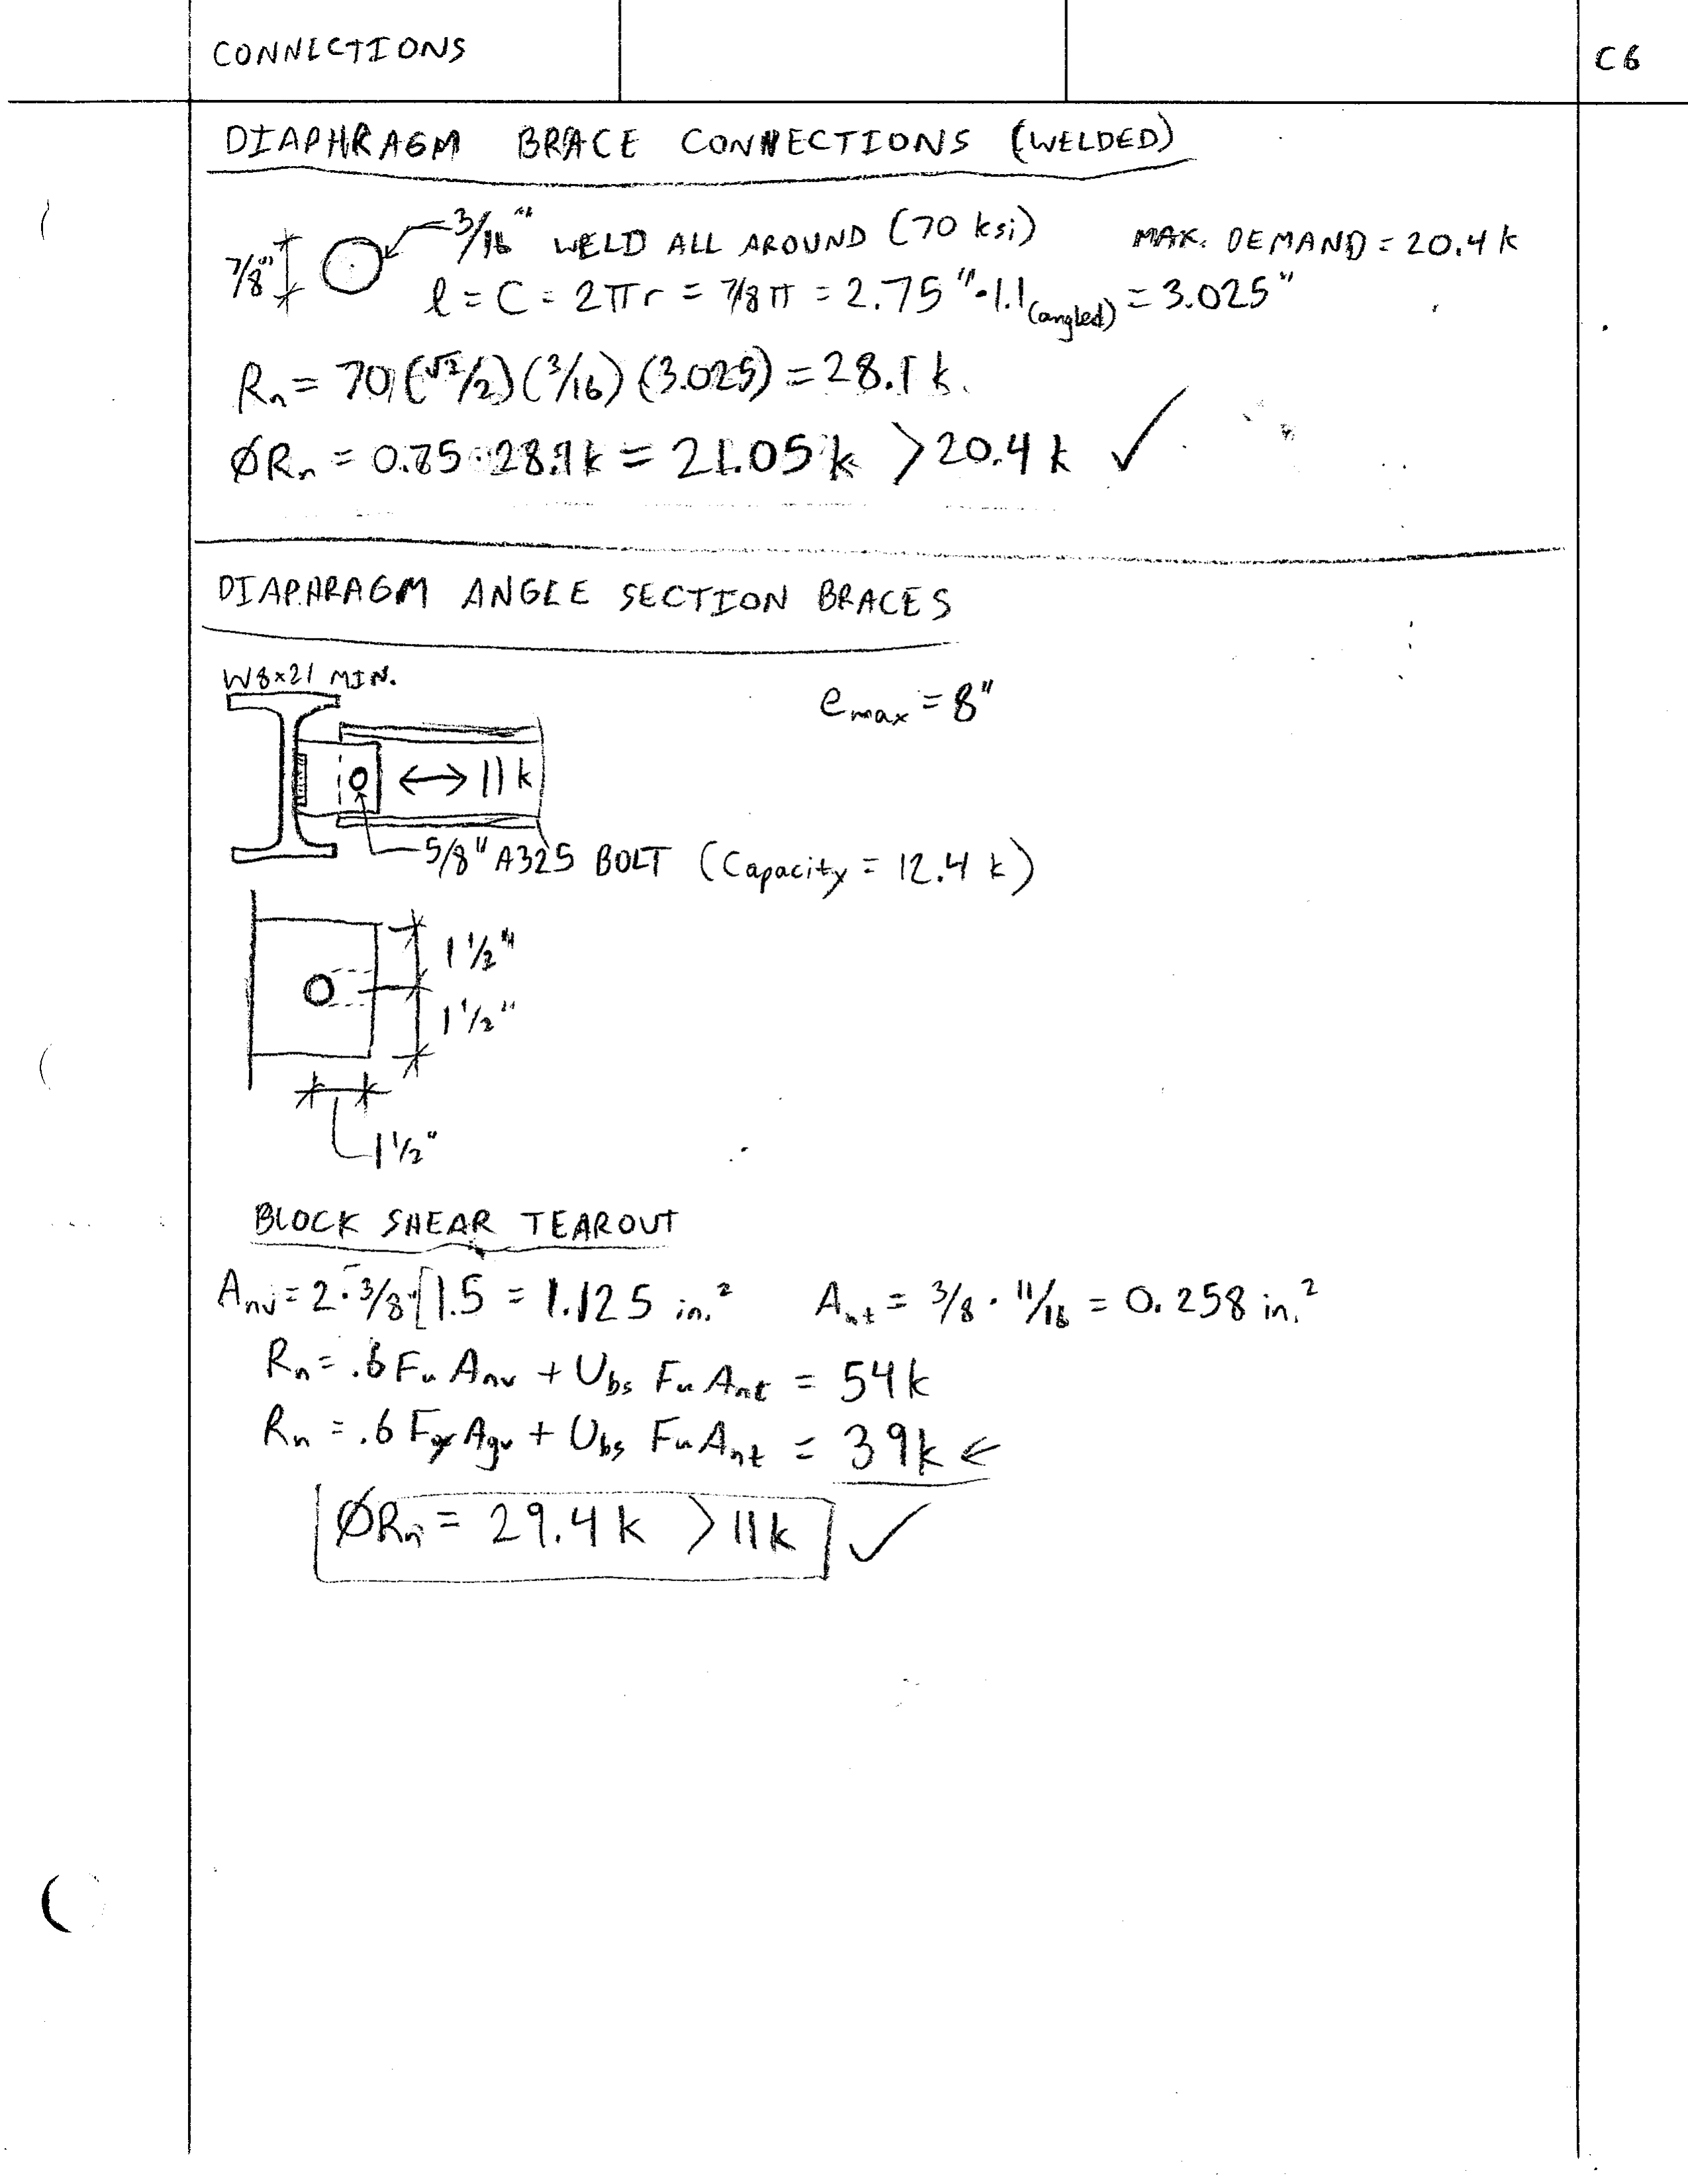 CONNECTIONS
C6
DIAPHRAGM BRACE CONNECTIONS (WELDED)
3/16" WELD ALL AROUND (70 ksi)
MAX. DEMAND = 20.4 k
7/8"
l = C = 2πr = 7/8 π = 2.75" · 1.1 (angled) = 3.025"
Rn = 70 (√2/2) (3/16) (3.025) = 28.1 k.
ØRn = 0.75 · 28.1 k = 21.05 k > 20.4 k ✓
DIAPHRAGM ANGLE SECTION BRACES
W8×21 MIN.
e max = 8"
↔ 11 k
5/8" A325 BOLT (Capacity = 12.4 k)
1 1/2"
1 1/2"
1 1/2"
BLOCK SHEAR TEAROUT
Anv = 2 · 3/8 · [1.5 = 1.125 in.²
Ant = 3/8 · 11/16 = 0.258 in.²
Rn = .6 Fu Anv + Ubs Fu Ant = 54 k
Rn = .6 Fy Agv + Ubs Fu Ant = 39 k ←
ØRn = 29.4 k > 11 k ✓